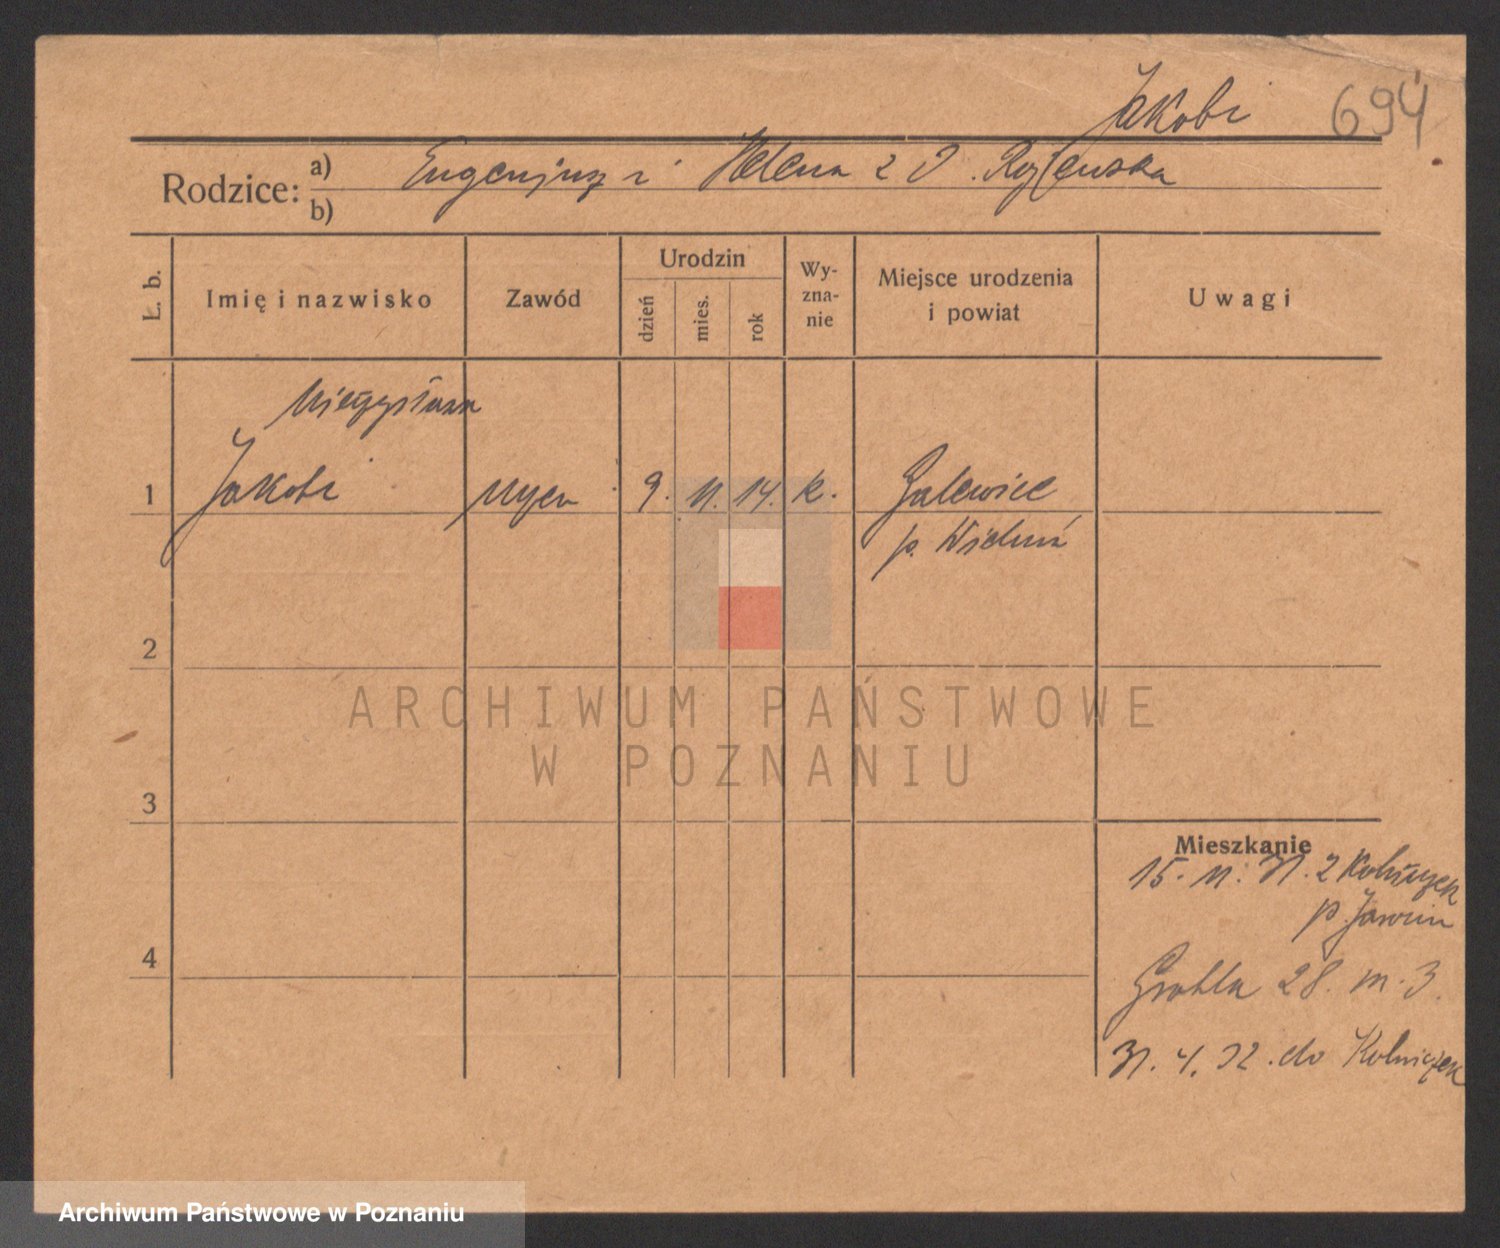 Jakobi
694
Rodzice: a) Eugenjusz i Helena z d.
b)
L. b.
Imię i nazwisko
Zawód
Urodzin
dzień
mies.
rok
Wy-
zna-
nie
Miejsce urodzenia
i powiat
Uwagi
Mieczysława
1 Jakobi uczen 9. 11. 14. k. Galewice
p. Wieluń
2
3
4
Mieszkanie
15. 11. 31. z
p. Jarocin
Grobla 28. m. 3.
4. 32. do
ARCHIWUM PAŃSTWOWE
W POZNANIU
Archiwum Państwowe w Poznaniu